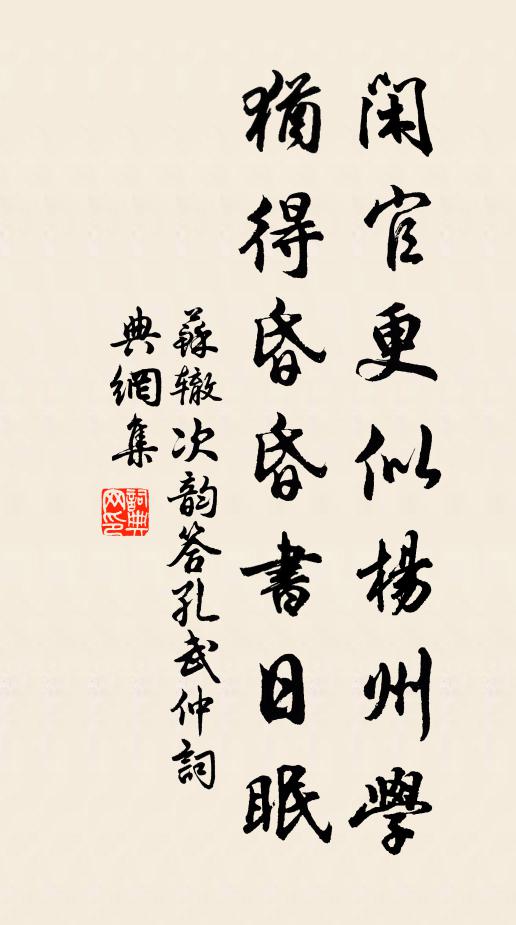 閑官更似楊州學
猶得昏昏書日眠
蘇轍次韵答孔武仲詞
典網集
詞典網印